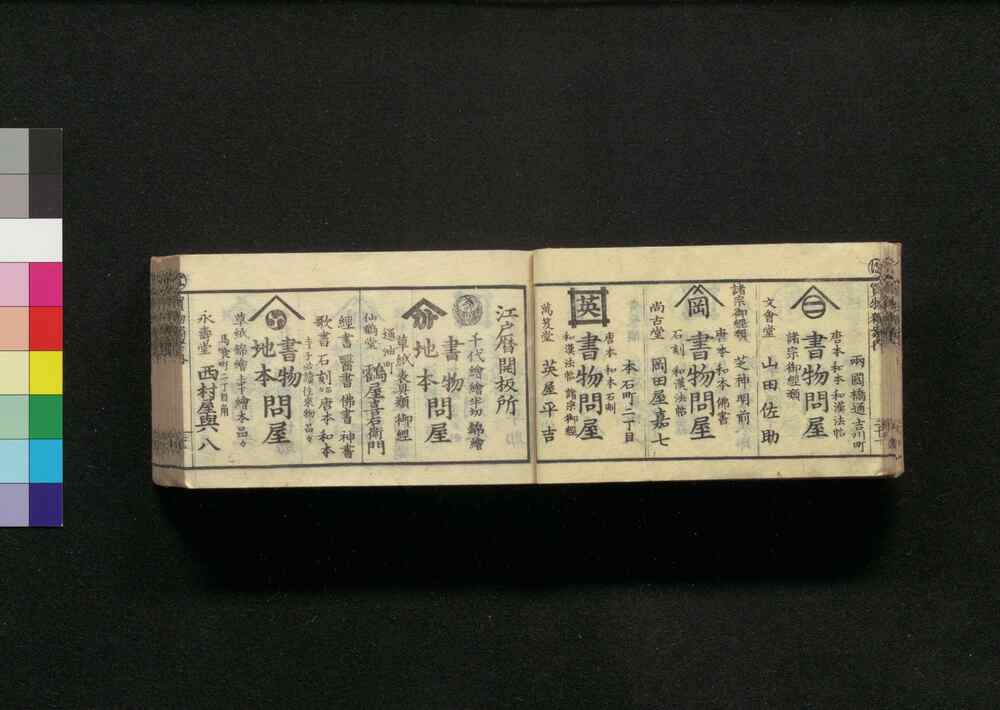 兩國橋通吉川町
唐本 和本 和漢法帖
書物問屋
諸宗御經類
文會堂 山田佐助
芝神明前
諸宗御經類
唐本 和本 佛書
岡
書物問屋
石刻 和漢法帖
尚古堂 岡田屋嘉七
本石町二丁目
唐本 和本 石刻
英
書物問屋
和漢法帖 諸宗御經
萬笈堂 英屋平吉
江戸暦開板所
千代繪繪半切 錦繪
書物
地本
問屋
草紙表具類御經
通油町
仙鶴堂 鶴屋喜右衛門
經書 醫書 佛書 神書
歌書 石刻 唐本 和本
書物
地本
問屋
草紙 錦繪 繪本品々
馬喰町二丁目角
永壽堂 西村屋與八